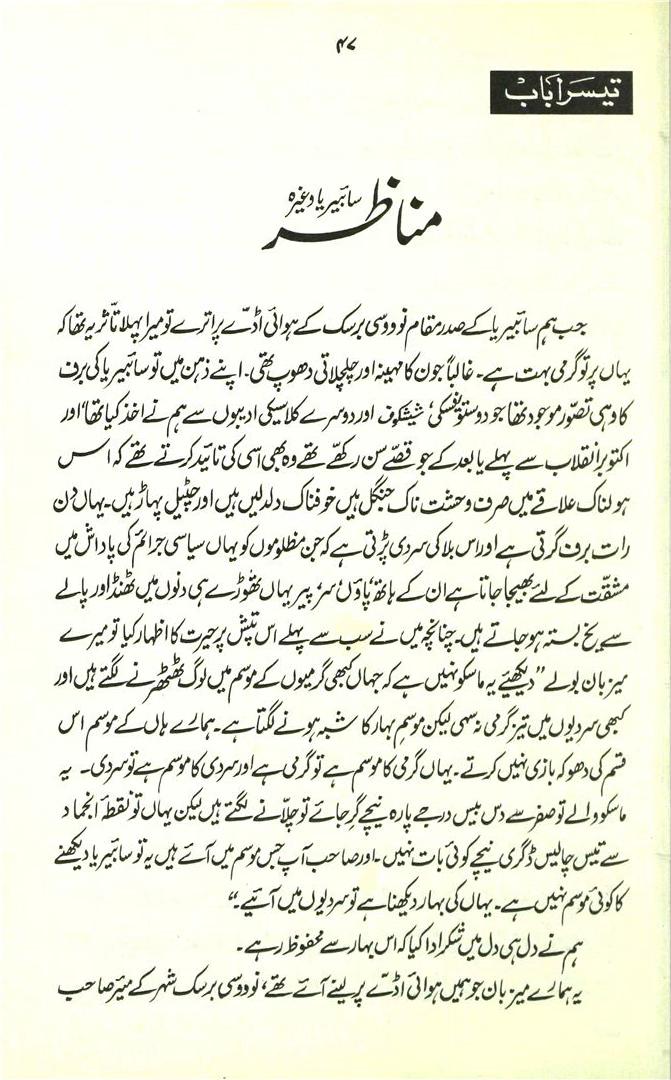 ۴۷
تیسرا باب
مناظر
سائبیریا وغیرہ
جب ہم سائبیریا کے صدر مقام نووسی برسک کے ہوائی اڈے پر اترے تو میرا پہلا تاثر یہ تھا کہ
یہاں پر تو گرمی بہت ہے۔ غالباً جون کا مہینہ اور چلچلاتی دھوپ تھی۔ اپنے ذہن میں تو سائبیریا کی برف
کا وہی تصوّر موجود تھا جو دوستوئفسکی، شیشکوف اور دوسرے کلاسیکی ادیبوں سے ہم نے اخذ کیا تھا، اور
اکتوبر انقلاب سے پہلے یا بعد کے جو قصّے سن رکھے تھے وہ بھی اسی کی تائید کرتے تھے کہ اس
ہولناک علاقے میں صرف وحشت ناک جنگل ہیں خوفناک دلدلیں ہیں اور چٹیل پہاڑ ہیں۔ یہاں دن
رات برف گرتی ہے اور اس بلا کی سردی پڑتی ہے کہ جن مظلوموں کو یہاں سیاسی جرائم کی پاداش میں
مشقّت کے لئے بھیجا جاتا ہے ان کے ہاتھ، پاؤں، سر، پیر یہاں تھوڑے ہی دنوں میں ٹھنڈ اور پالے
سے یخ بستہ ہو جاتے ہیں۔ چنانچہ میں نے سب سے پہلے اس تپش پر حیرت کا اظہار کیا تو میرے
میزبان بولے ”دیکھیئے یہ ماسکو نہیں ہے کہ جہاں کبھی گرمیوں کے موسم میں لوگ ٹھٹھرنے لگتے ہیں اور
کبھی سردیوں میں تیز گرمی نہ سہی لیکن موسم بہار کا شبہ ہونے لگتا ہے۔ ہمارے ہاں کے موسم اس
قسم کی دھوکہ بازی نہیں کرتے۔ یہاں گرمی کا موسم ہے تو گرمی ہے اور سردی کا موسم ہے تو سردی۔ یہ
ماسکو والے تو صفر سے دس بیس درجے پارہ نیچے گر جائے تو چلّانے لگتے ہیں لیکن یہاں تو نقطۂ انجماد
سے تیس چالیس ڈگری نیچے کوئی بات نہیں۔ اور صاحب آپ جس موسم میں آئے ہیں یہ تو سائبیریا دیکھنے
کا کوئی موسم نہیں ہے۔ یہاں کی بہار دیکھنا ہے تو سردیوں میں آئیے۔“
ہم نے دل ہی دل میں شکر ادا کیا کہ اس بہار سے محفوظ رہے۔
یہ ہمارے میزبان جو ہمیں ہوائی اڈے پر لینے آئے تھے، نووسی برسک شہر کے میئر صاحب